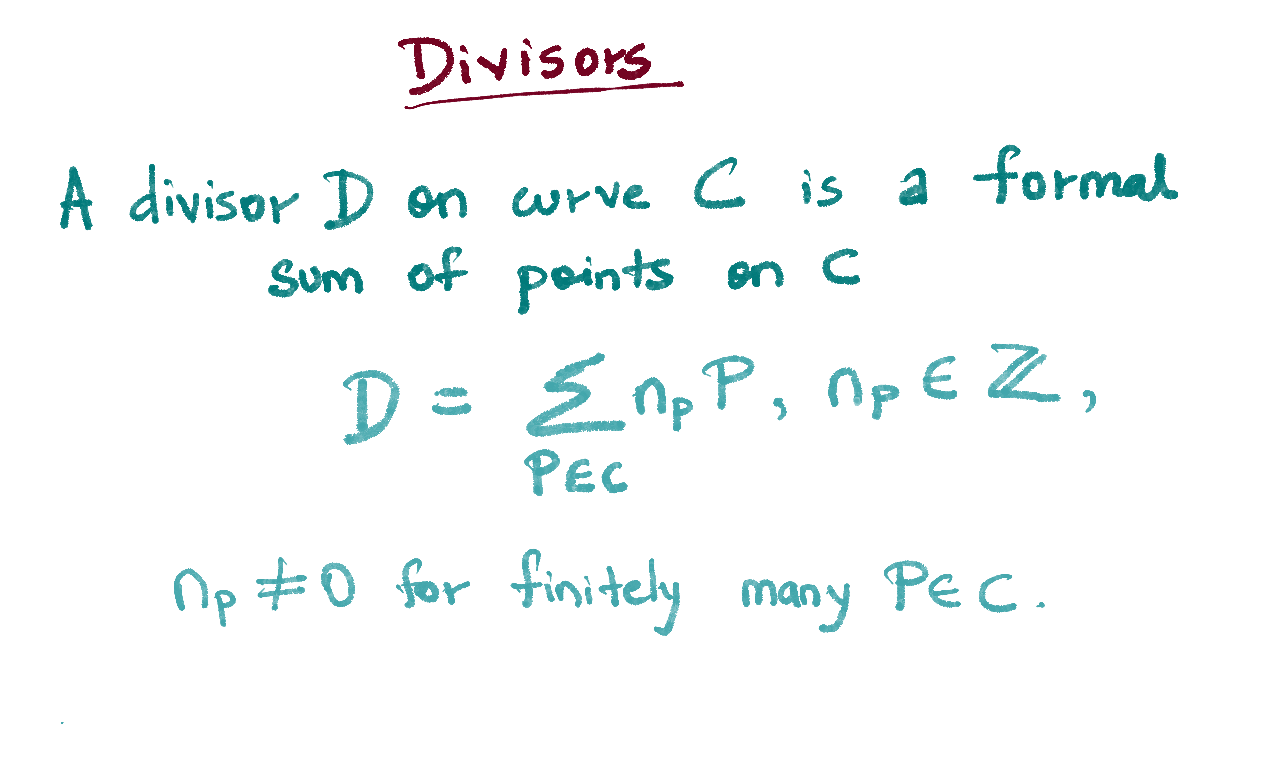 Divisors
A divisor D on curve C is a formal
sum of points on C
D = ∑ nₚ P, nₚ ∈ ℤ,
P∈C
nₚ ≠ 0 for finitely many P∈C.